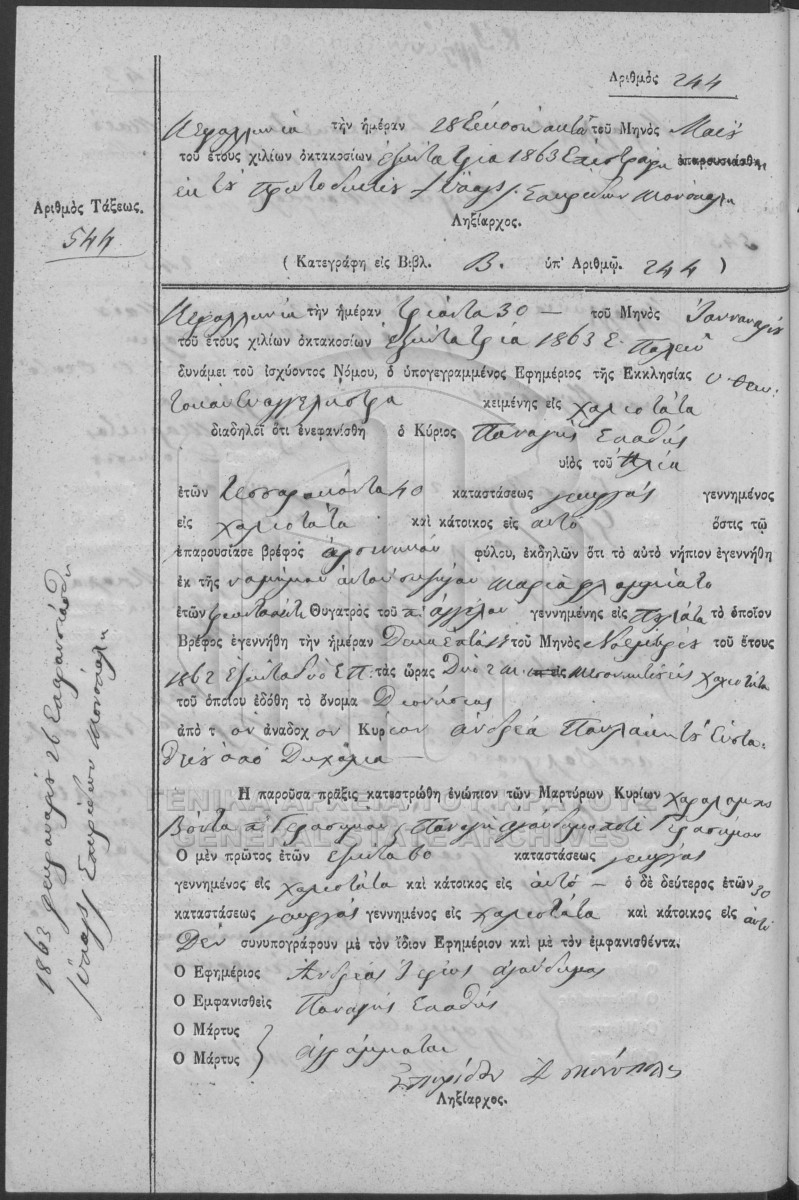 Ἀριθμὸς 244
Κεφαλληνία τὴν ἡμέραν 28 Εἴκοσι ὀκτὼ τοῦ Μηνὸς Μαΐου
τοῦ ἔτους χιλίων ὀκτακοσίων ἑξήντα τρία 1863 ἐπαρουσιάσθη
ἐκ τοῦ Σπυρίδων Μονόπολη
Ληξίαρχος.
Ἀριθμὸς Τάξεως.
544
( Κατεγράφη εἰς Βιβλ. Β. ὑπ' Ἀριθμῷ. 244 )
Κεφαλληνία τὴν ἡμέραν τριάντα 30 — τοῦ Μηνὸς Ἰανναρίου
τοῦ ἔτους χιλίων ὀκτακοσίων ἑξήντα τρία 1863 Ε. Παλαιὸν
δυνάμει τοῦ ἰσχύοντος Νόμου, ὁ ὑπογεγραμμένος Ἐφημέριος τῆς Ἐκκλησίας Υ. Θεο:
τόκου Ευαγγελίστρα κειμένης εἰς χαλιοτάτα
διαδηλοῖ ὅτι ἐνεφανίσθη ὁ Κύριος Παναγῆς Σπαθῆς
υἱὸς τοῦ Ηλία
ἐτῶν τεσσαράκοντα 40 καταστάσεως γεωργὸς γεννημένος
εἰς χαλιοτάτα καὶ κάτοικος εἰς αυτό ὅστις τῷ
ἐπαρουσίασε βρέφος ἀρσενικοῦ φύλου, ἐκδηλῶν ὅτι τὸ αὐτὸ νήπιον ἐγεννήθη
ἐκ τῆς νομήμου αυτου συζύγου Μαρία
ἐτῶν Θυγατρὸς τοῦ π. ἀγγέλου γεννημένης εἰς τὸ ὁποῖον
Βρέφος ἐγεννήθη τὴν ἡμέραν Δεκα επτὰ 17 τοῦ Μηνὸς Νοεμβρίου τοῦ ἔτους
1862 ἑξήντα δύο Ε Π: τὰς ὥρας Δύο 2 εἰς χαλιοτάτα
τοῦ ὁποίου ἐδόθη τὸ ὄνομα Διονήσιος
ἀπὸ τ ὸν ἀναδοχ ον Κυρίον ἀνδρέα Παυλάκη τοῦ Ευστα:
θίου ἀπὸ Διχάλια —
Ἡ παροῦσα πρᾶξις κατεστρώθη ἐνώπιον τῶν Μαρτύρων Κυρίων χαραλάμπης
Βόντα π. Γερασίμου, Παναγῆ Γερασίμου
ΓΕΝΙΚΑ ΑΡΧΕΙΑ ΤΟΥ ΚΡΑΤΟΥΣ
GENERAL STATE ARCHIVES
Ὁ μὲν πρῶτος ἐτῶν εξήντα 60 καταστάσεως γεωργὸς
γεννημένος εἰς χαλιοτάτα καὶ κάτοικος εἰς αυτό — ὁ δὲ δεύτερος ἐτῶν 30
καταστάσεως γεωργὸς γεννημένος εἰς χαλιοτάτα καὶ κάτοικος εἰς αυτό
Δεν συνυπογράφουν μὲ τὸν ἴδιον Ἐφημέριον καὶ μὲ τὸν ἐμφανισθέντα.
Ὁ Ἐφημέριος Ἀνδρέας Ἱερεὺς
Ὁ Ἐμφανισθεὶς Παναγῆς Σπαθῆς
Ὁ Μάρτυς
Ὁ Μάρτυς ἀγράμματοι
Σπυρίδων Μονόπολης
Ληξίαρχος.
1863 26 Επαρουσιάσθη
Σπυρίδων Μονόπολη